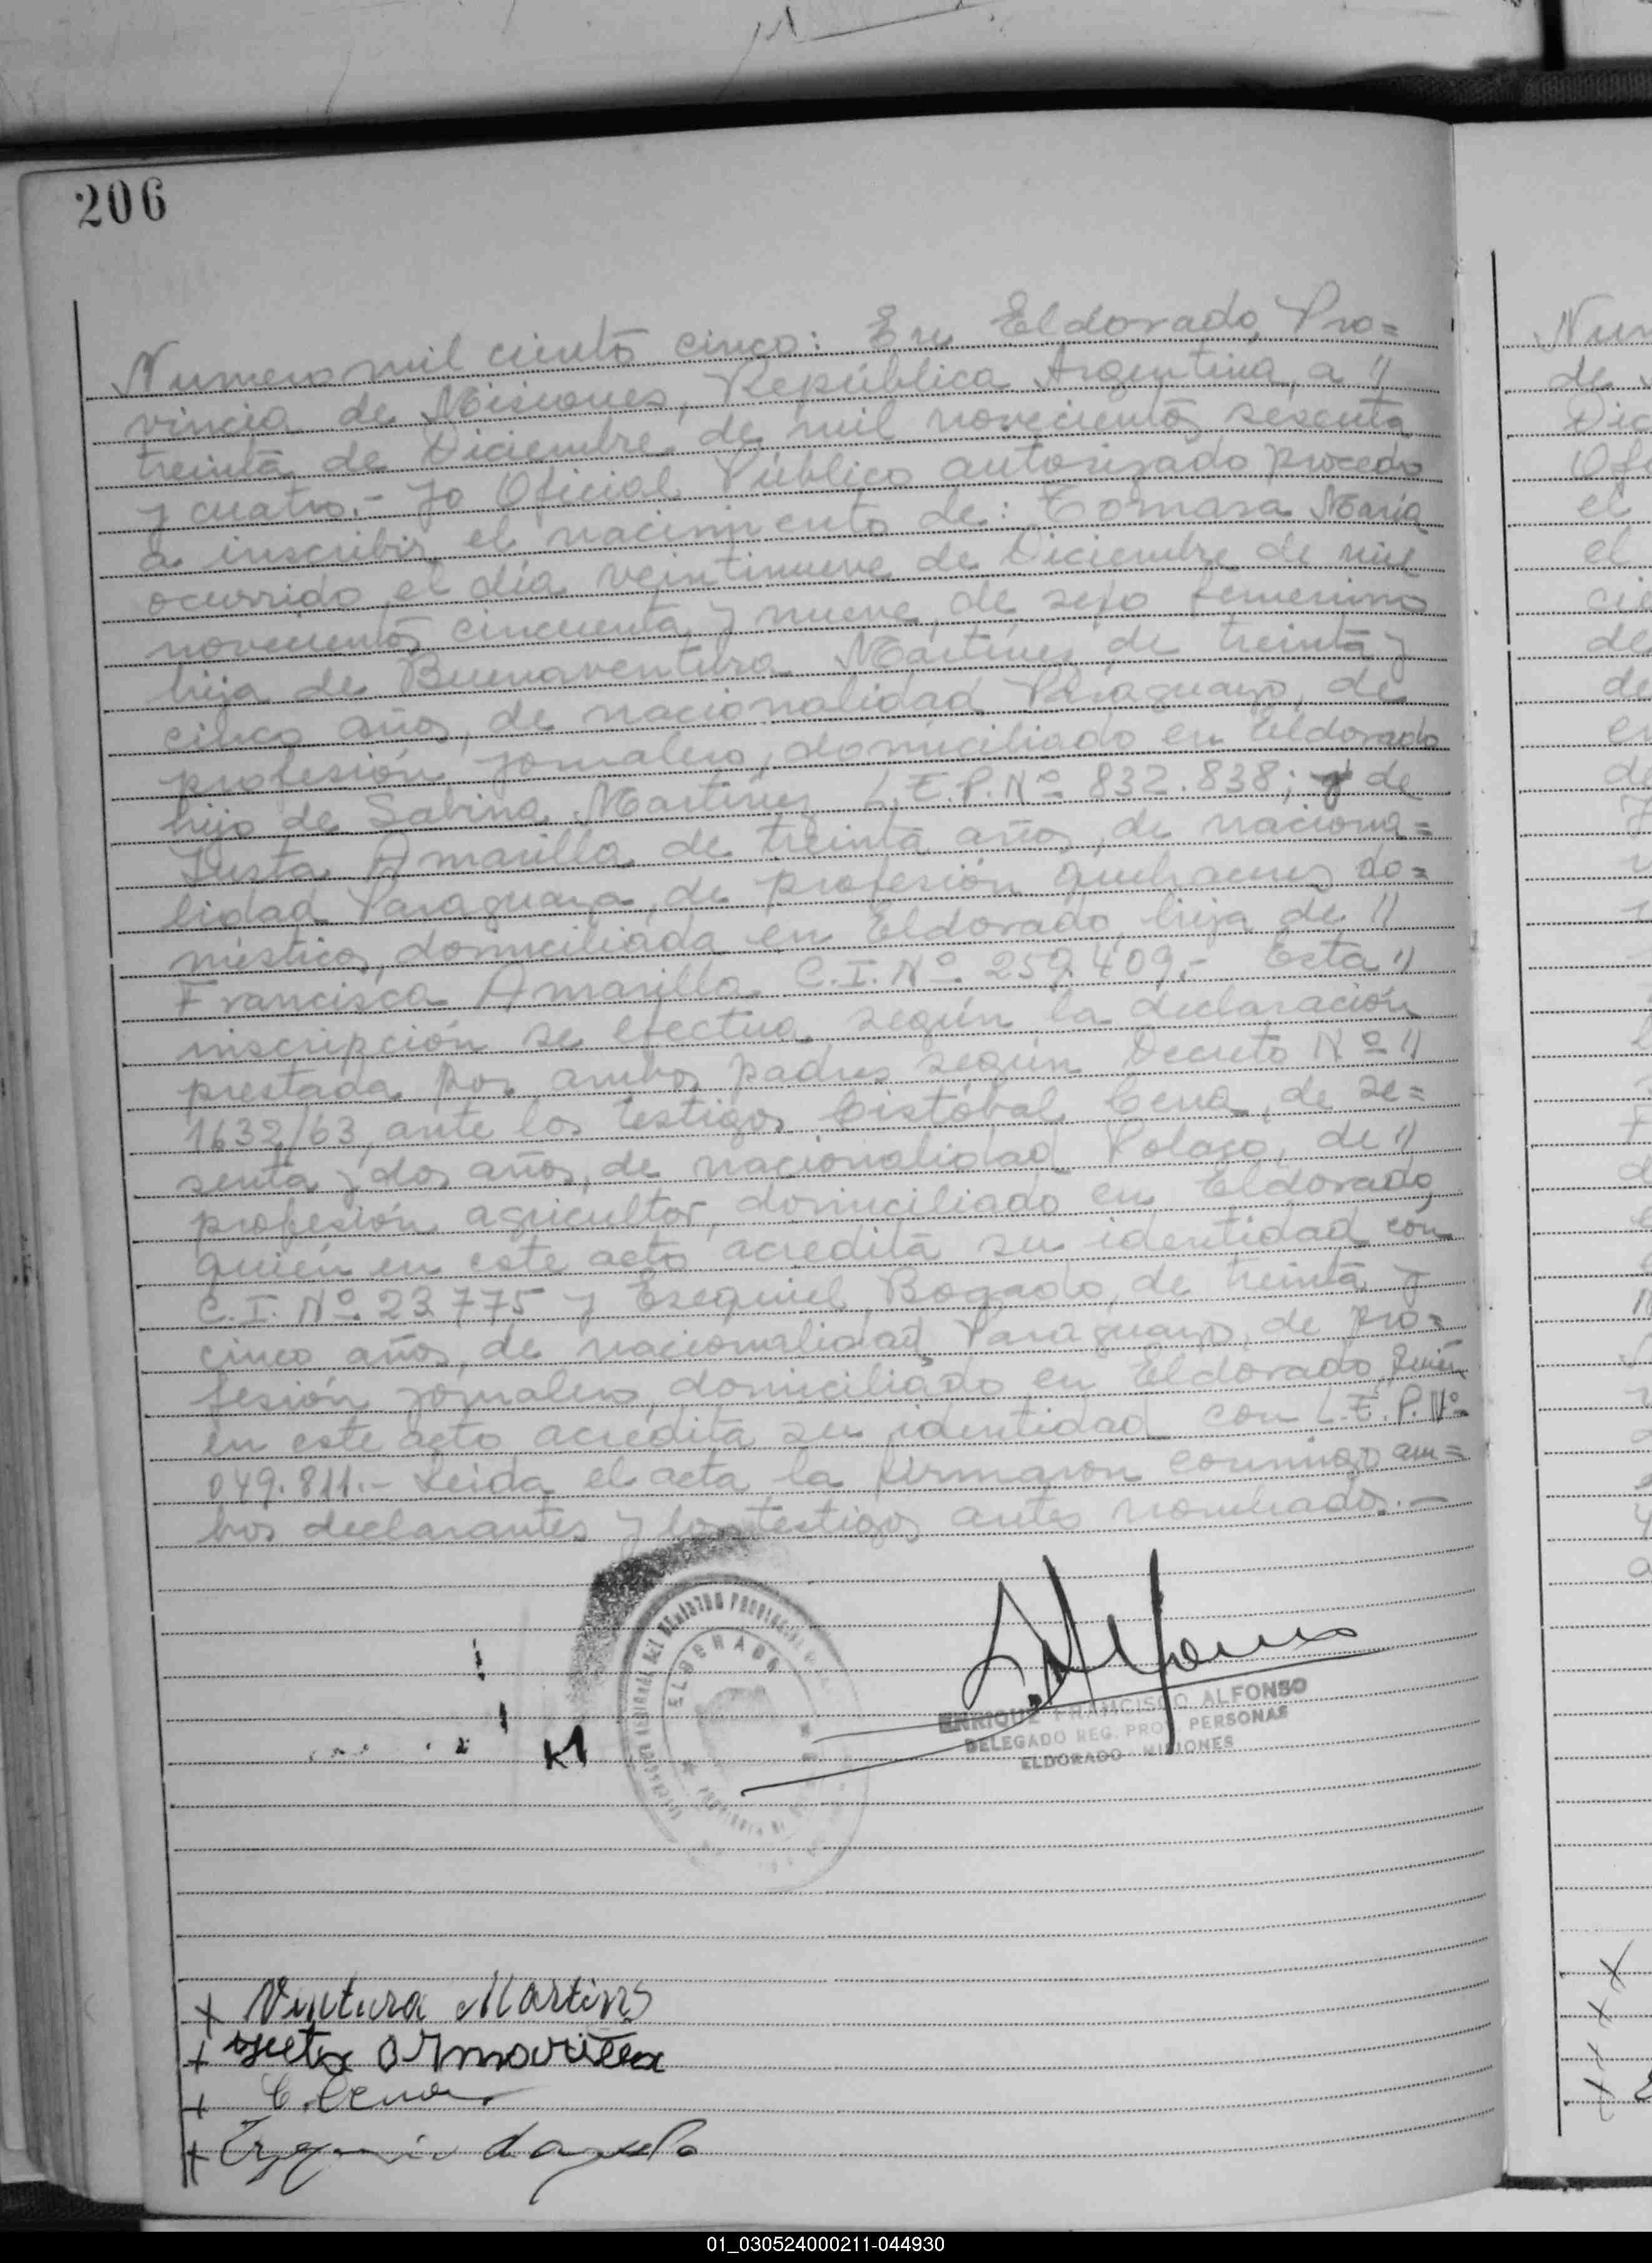 206
Numero mil ciento cinco: En Eldorado, Pro=
vincia de Misiones, República Argentina, a "
treinta de Diciembre de mil novecientos sesenta
y cuatro.- Yo Oficial Público autorizado procedo
a inscribir el nacimiento de: Tomasa María
ocurrido el día veintinueve de Diciembre de mil
novecientos cincuenta y nueve, de sexo femenino
hija de Buenaventura Martínez, de treinta y
cinco años, de nacionalidad Paraguayo, de
profesión jornalero, domiciliado en Eldorado
hijo de Sabina Martínez L.E.P.Nº 832.838; y de
Justa Amarilla, de treinta años, de naciona=
lidad Paraguaya, de profesión quehaceres do=
mésticos, domiciliada en Eldorado, hija de "
Francisca Amarilla C.I.Nº 259.409.- Esta "
inscripción se efectua según la declaración
prestada por ambos padres según Decreto Nº "
1632/63, ante los testigos Cistóbal Cena, de se=
senta y dos años, de nacionalidad Polaco, de "
profesión agricultor, domiciliado en Eldorado,
quién en este acto acredita su identidad con
C.I.Nº 23.775 y Esequiel Bogado, de treinta y
cinco años, de nacionalidad Paraguayo, de pro=
fesión jornalero, domiciliado en Eldorado, quién
en este acto acredita su identidad con L.E.P.Nº
049.811.- Leida el acta la firmaron conmigo am=
bos declarantes y los testigos antes nombrados.-
ELDORADO
ENRIQUE FRANCISCO ALFONSO
DELEGADO REG. PROV. PERSONAS
ELDORADO - MISIONES
x Ventura Martins
+ Amarilla
+ C. Cena
+
01_030524000211-044930